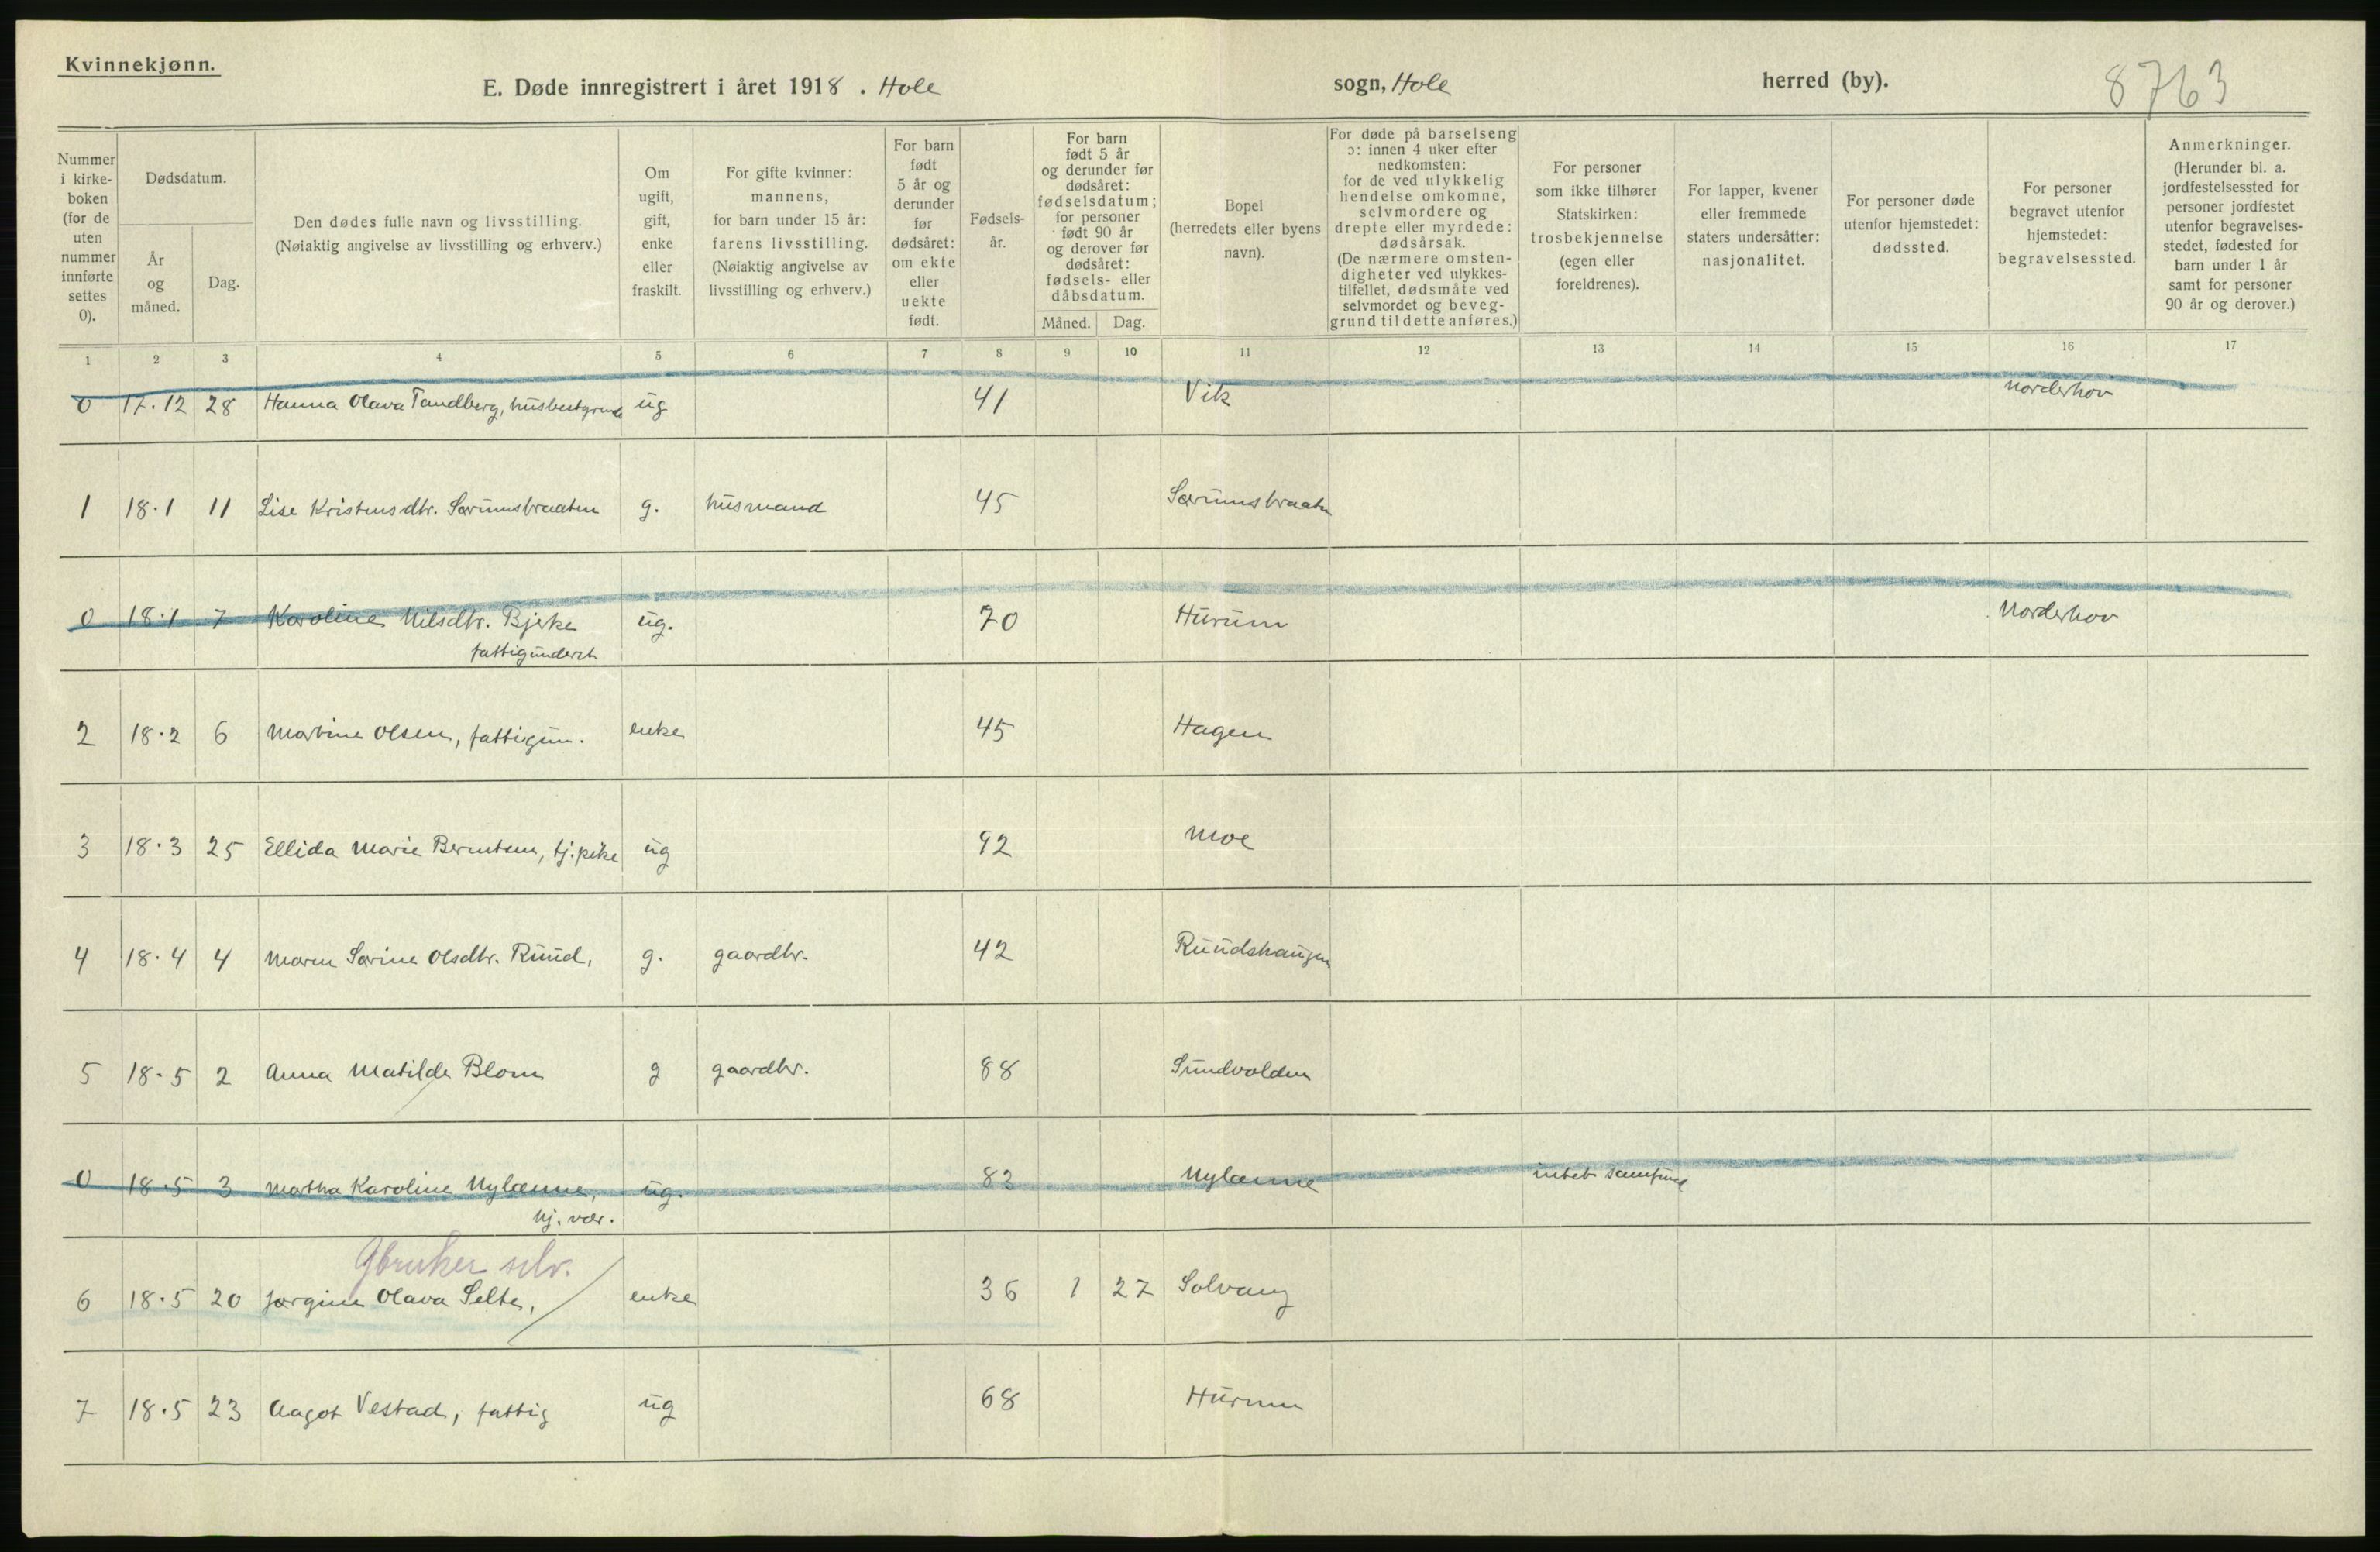 Kvinnekjønn.
E. Døde innregistrert i året 1918. Hole sogn, Hole herred (by). 8763
Nummer i kirkeboken (for de uten nummer innførte settes 0).
Dødsdatum.
År og måned.
Dag.
Den dødes fulle navn og livsstilling.
(Nøiaktig angivelse av livsstilling og erhverv.)
Om ugift, gift, enke eller fraskilt.
For gifte kvinner: mannens, for barn under 15 år: farens livsstilling. (Nøiaktig angivelse av livsstilling og erhverv.)
For barn født 5 år og derunder før dødsåret: om ekte eller uekte født.
Fødselsår.
For barn født 5 år og derunder før dødsåret: fødselsdatum; for personer født 90 år og derover før dødsåret: fødsels- eller dåbsdatum.
Måned. Dag.
Bopel (herredets eller byens navn).
For døde på barselseng ɔ: innen 4 uker efter nedkomsten: for de ved ulykkelig hendelse omkomne, selvmordere og drepte eller myrdede: dødsårsak. (De nærmere omstendigheter ved ulykkestilfellet, dødsmåte ved selvmordet og beveggrund til dette anføres.)
For personer som ikke tilhører Statskirken: trosbekjennelse (egen eller foreldrenes).
For lapper, kvener eller fremmede staters undersåtter: nasjonalitet.
For personer døde utenfor hjemstedet: dødssted.
For personer begravet utenfor hjemstedet: begravelsessted.
Anmerkninger. (Herunder bl. a. jordfestelsessted for personer jordfestet utenfor begravelsesstedet, fødested for barn under 1 år samt for personer 90 år og derover.)
1 2 3 4 5 6 7 8 9 10 11 12 13 14 15 16 17
0 17.12 28 Hanna Olava Tandberg, ug 41 Vik Norderhov
1 18.1 11 Lise Kristensdtr. Sørumsbraaten g. husmand 45 Sørumsbraaten
0 18.1 7 Karoline Nilsdtr. Bjerke ug. 70 Hurum Norderhov
fattigunderst
2 18.2 6 Martine Olsen, fattigun. enke 45 Hagen
3 18.3 25 Ellida Marie Berntsen, tj.pike ug 92 Moe
4 18.4 4 Maren Sørine Olsdtr. Ruud, g. gaardbr. 42 Ruudshaugen
5 18.5 2 Anna Matilde Blom g gaardbr. 88 Sundvolden
0 18.5 3 Martha Karoline Nylænne, ug. 83 Nylænne intet samfund
hj. vær.
Gbruker selv.
6 18.5 20 Jørgine Olava Selte, enke 36 1 27 Solvang
7 18.5 23 Aagot Vestad, fattig ug 68 Hurum